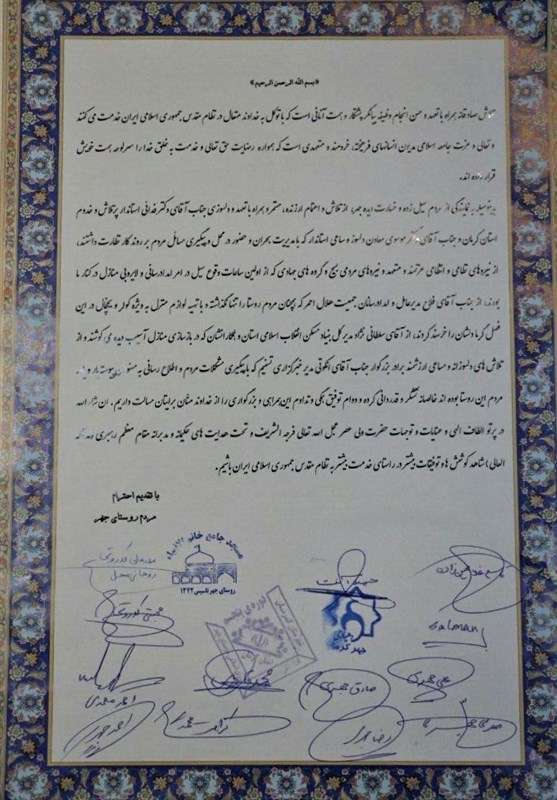 «بسم الله الرحمن الرحیم»
تلاش صادقانه همراه با تعهد و حسن انجام وظیفه بیانگر پشتکار و همت آنانی است که با توکل به خداوند متعال در نظام مقدس جمهوری اسلامی ایران خدمت می کنند
و تعالی و عزت جامعه اسلامی مدیون انسانهای فرهیخته، خردمند و متعهدی است که همواره رضایت حق تعالی و خدمت به خلق خدا را سرلوحه همت خویش
قرار داده اند.
بدینوسیله به نمایندگی از مردم سیل زده و خسارت دیده جهر، از تلاش و اهتمام ارزنده، مستمر و همراه با تعهد و دلسوزی جناب آقای دکتر فدائی استاندار پرتلاش و خدوم
استان کرمان و جناب آقای دکتر موسوی معاون دلسوز و ساعی استاندار که با مدیریت بحران و حضور در محل و پیگیری مسائل مردم بر روند کار نظارت داشتند،
از نیروهای نظامی و انتظامی عزتمند و متعهد و نیروهای مردمی بسیج و گروه های جهادی که از اولین ساعات وقوع سیل در امر امدادرسانی و لایروبی منازل در کنار ما
بودند، از جناب آقای فلاح مدیرعامل و امدادرسانان جمعیت هلال احمر که همچنان مردم روستا را تنها نگذاشته و با تهیه لوازم منزل به ویژه کولر و یخچال در این
فصل گرما دلشان را خرسند کردند، از آقای سلطانی نژاد مدیر کل بنیاد مسکن انقلاب اسلامی استان و همکار انشان که در بازسازی منازل آسیب دیده می کوشند و از
تلاش های دلسوزانه و مساعی ارزشمند برادر بزرگوار جناب آقای انکوتی مدیر خبرگزاری تسنیم که با پیگیری مشکلات مردم و اطلاع رسانی به
مردم این روستا بوده اند خالصانه تشکر و قدردانی کرده و دوام توفیق همگی و تداوم این همراهی و بزرگواری را از خداوند منان برایتان مسالت داریم. ان شاء الله
در پرتو الطاف الهی و عنایات و توجهات حضرت ولی عصر عجل الله تعالی فرجه الشریف و تحت هدایت های حکیمانه و مدبرانه مقام معظم رهبری (مدظله
العالی) شاهد کوشش ها و توفیقات بیشتر در راستای خدمت بیشتر به نظام مقدس جمهوری اسلامی ایران باشیم.
با تقدیم احترام
مردم روستای جهر
مسجد جامع
روستای جهر تاسیس ۱۳۶۲
احمد محمدی
صادق
علی محمدی
رضا